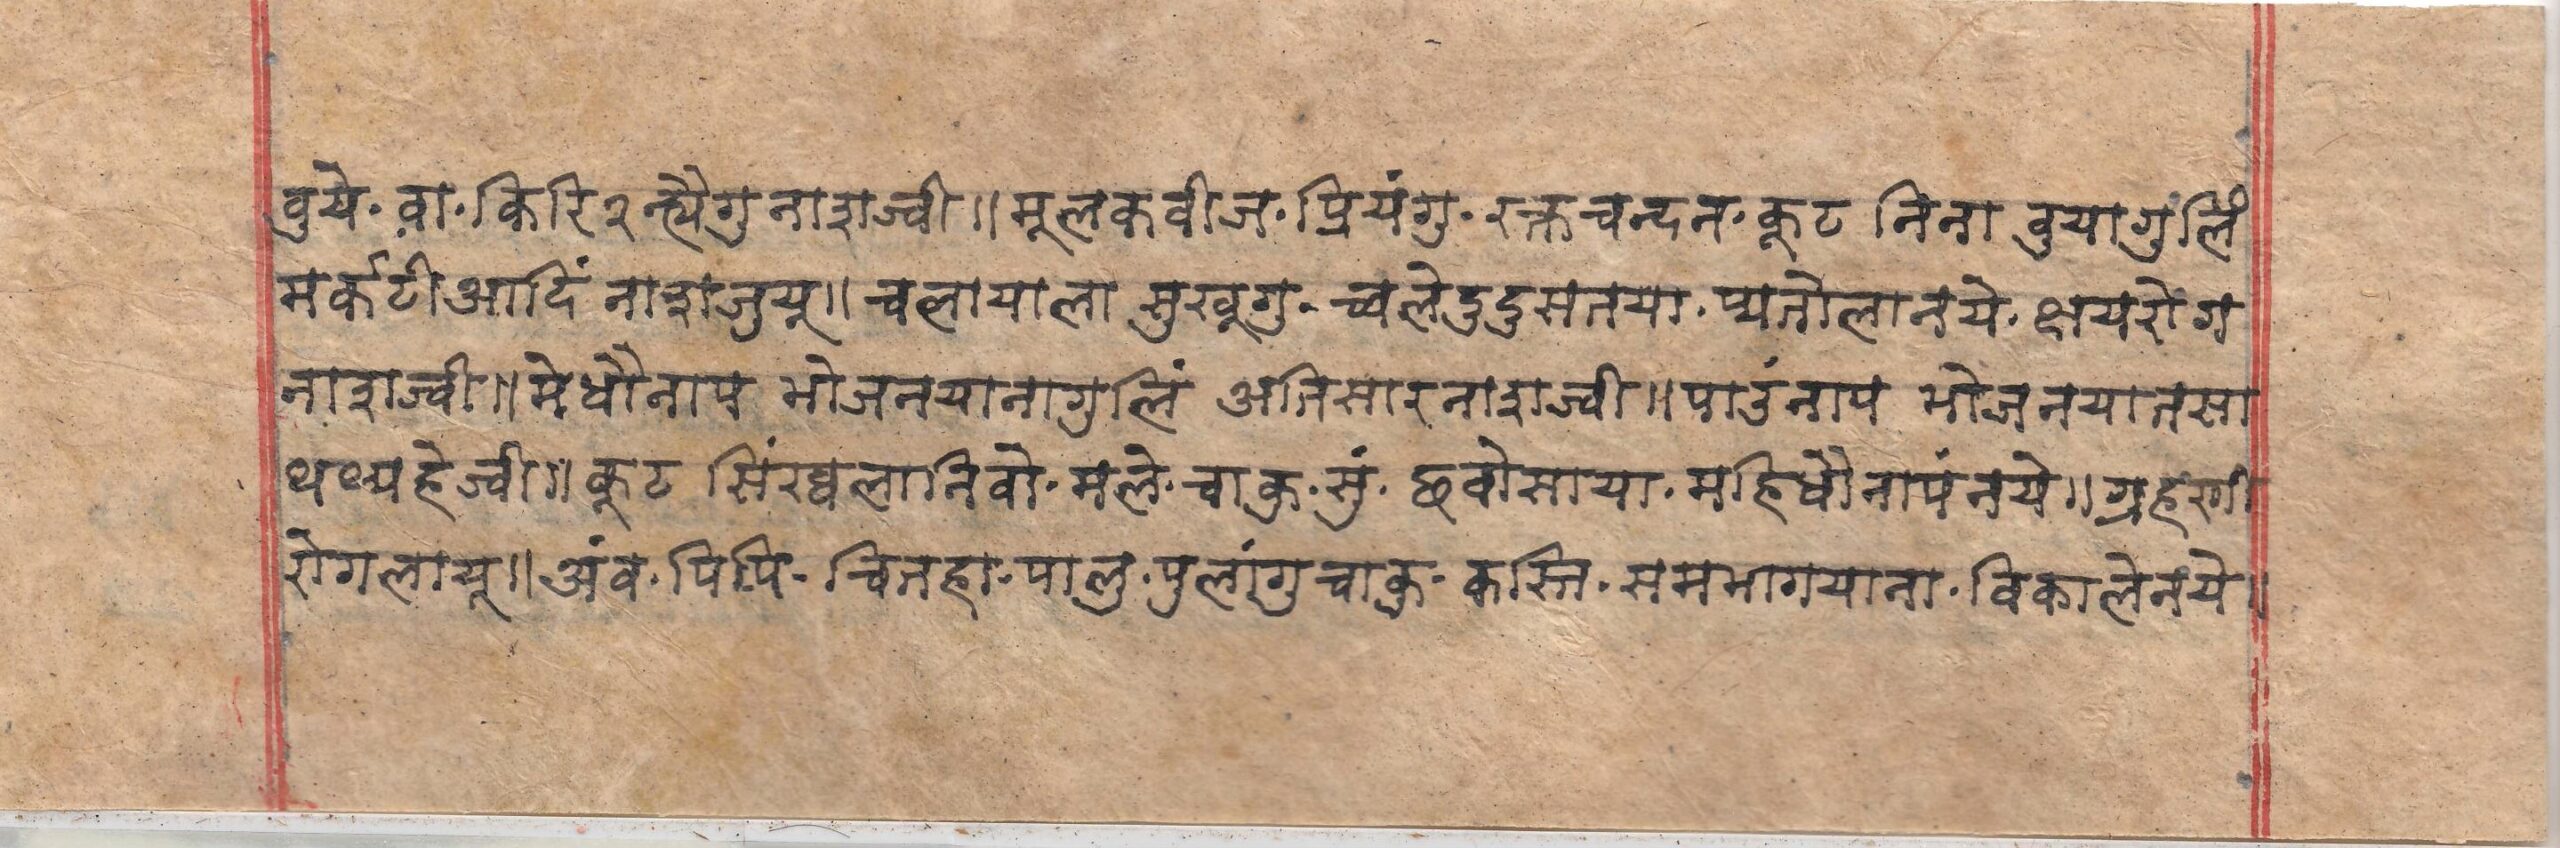 वुये· वा· किरि२न्त्यैगु नाशज्वी॥ मूलकवीज· प्रियंगु· रक्तचन्दन· कूट निना वुयागुलिं
मर्कटीआदिं नाशजुयू॥ चलायाला सुखूगु· च्वलेदुदुसतया· प्यतोलानये· क्षयरोग
नाशज्वी॥ मेधौनाप भोजनयानागुलिं अतिसारनाशज्वी॥ पाउंनाप भोजनयातसा
थथ्यहेज्वी॥ कूट सिंरघ्वलानिवो· मले· चाकु· सुं· छवोसाया· महिधौनापंनये॥ ग्रहणी
रोगलायू॥ अंव· पिपि· चितहा· पालु· पुलांगुचाकु· कस्ति· समभागयाना· विकालेनये॥